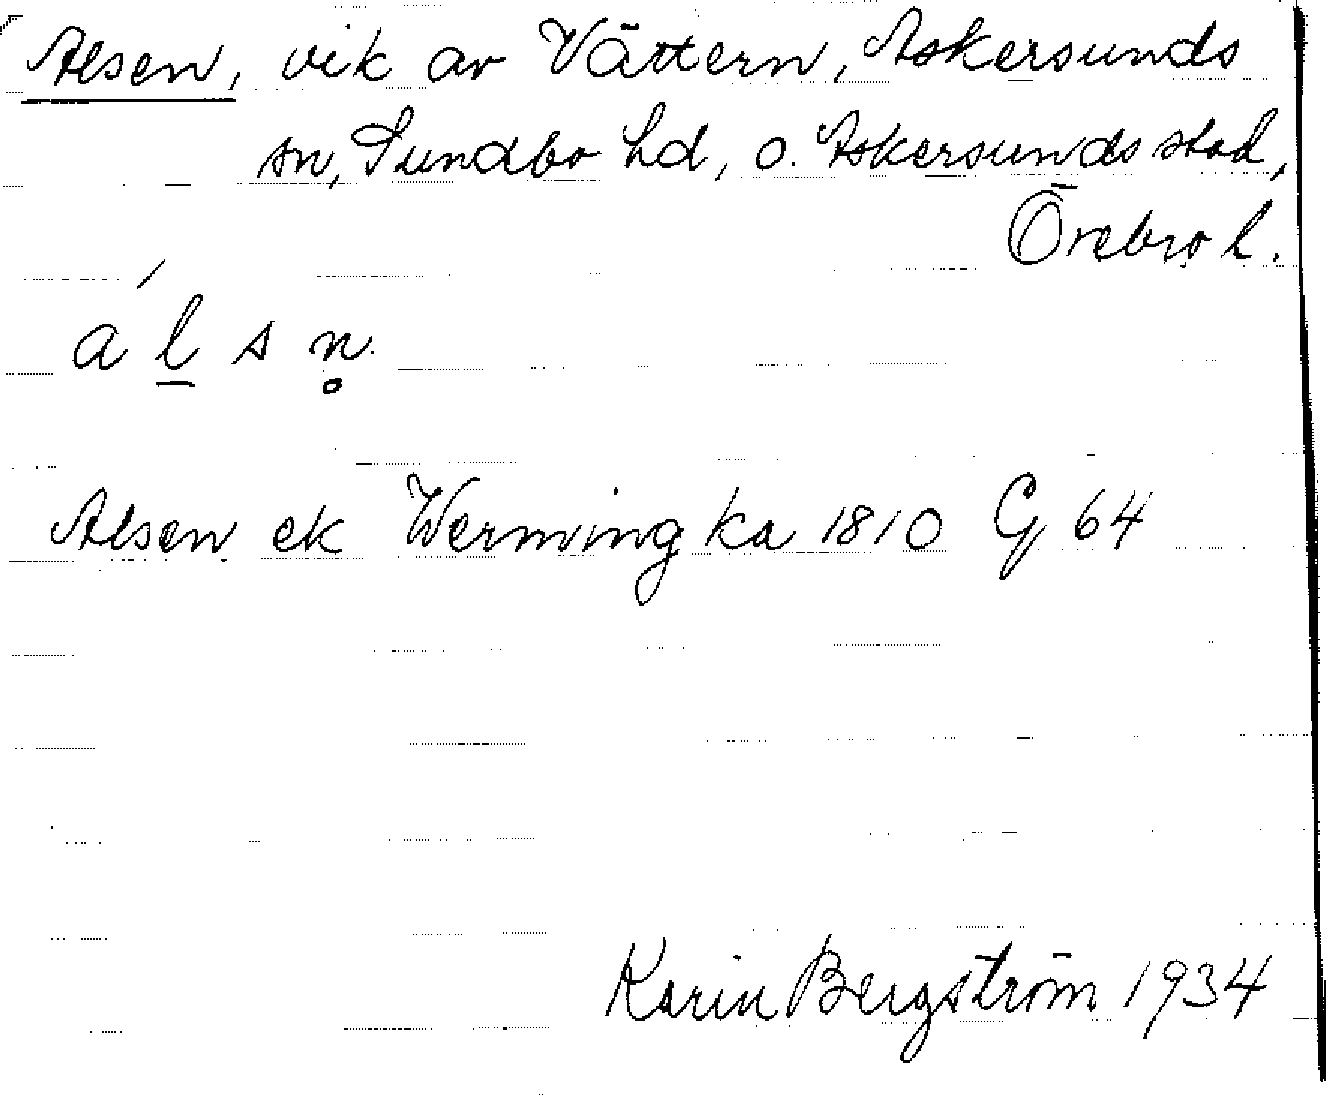 Alsen, vik av Vättern, Askersunds
sn, Sundbo hd, o. Askersunds stad,
Örebro l.
a ́l̲ s n̥
Alsen ek Werming ka 1810 G 64
Karin Bergström 1934